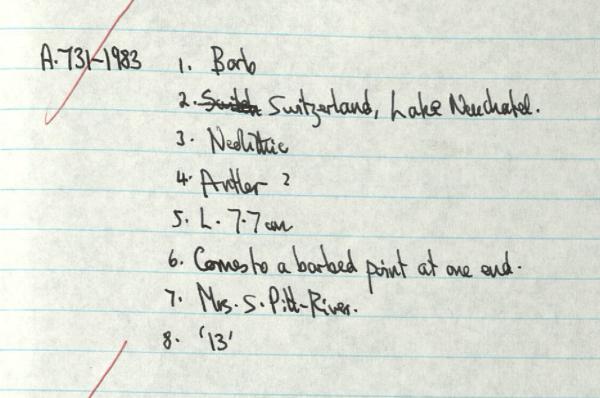 A.731-1983 1. Barb
2. Switzerland, Lake Neuchatel.
3. Neolithic
4. Antler ?
5. L. 7.7 cm
6. Comes to a barbed point at one end.
7. Mrs. S. Pitt-River.
8. '13'